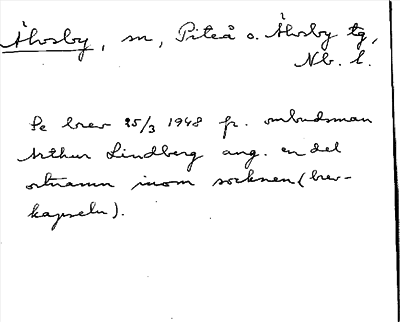 Älvsby, sn, Piteå o. Älvsby tg,
Nb. l.
Se brev 25/3 1948 fr. ombudsman
Arthur Lindberg ang. en del
ortnamn inom socknen (brev-
kapseln).